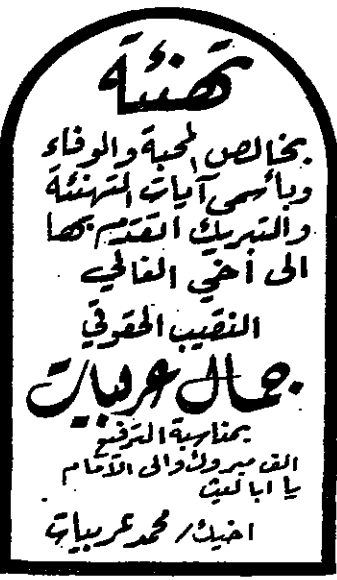 تهنئة
بخالص المحبة والوفاء
وبأسمى آيات التهنئة
والتبريك اتقدم بها
الى أخي الغالي
النقيب الحقوقي
جمال عربيات
بمناسبة الترفيع
الف مبروك والى الأمام
يا ابا ليث
اخيك / محمد عربيات